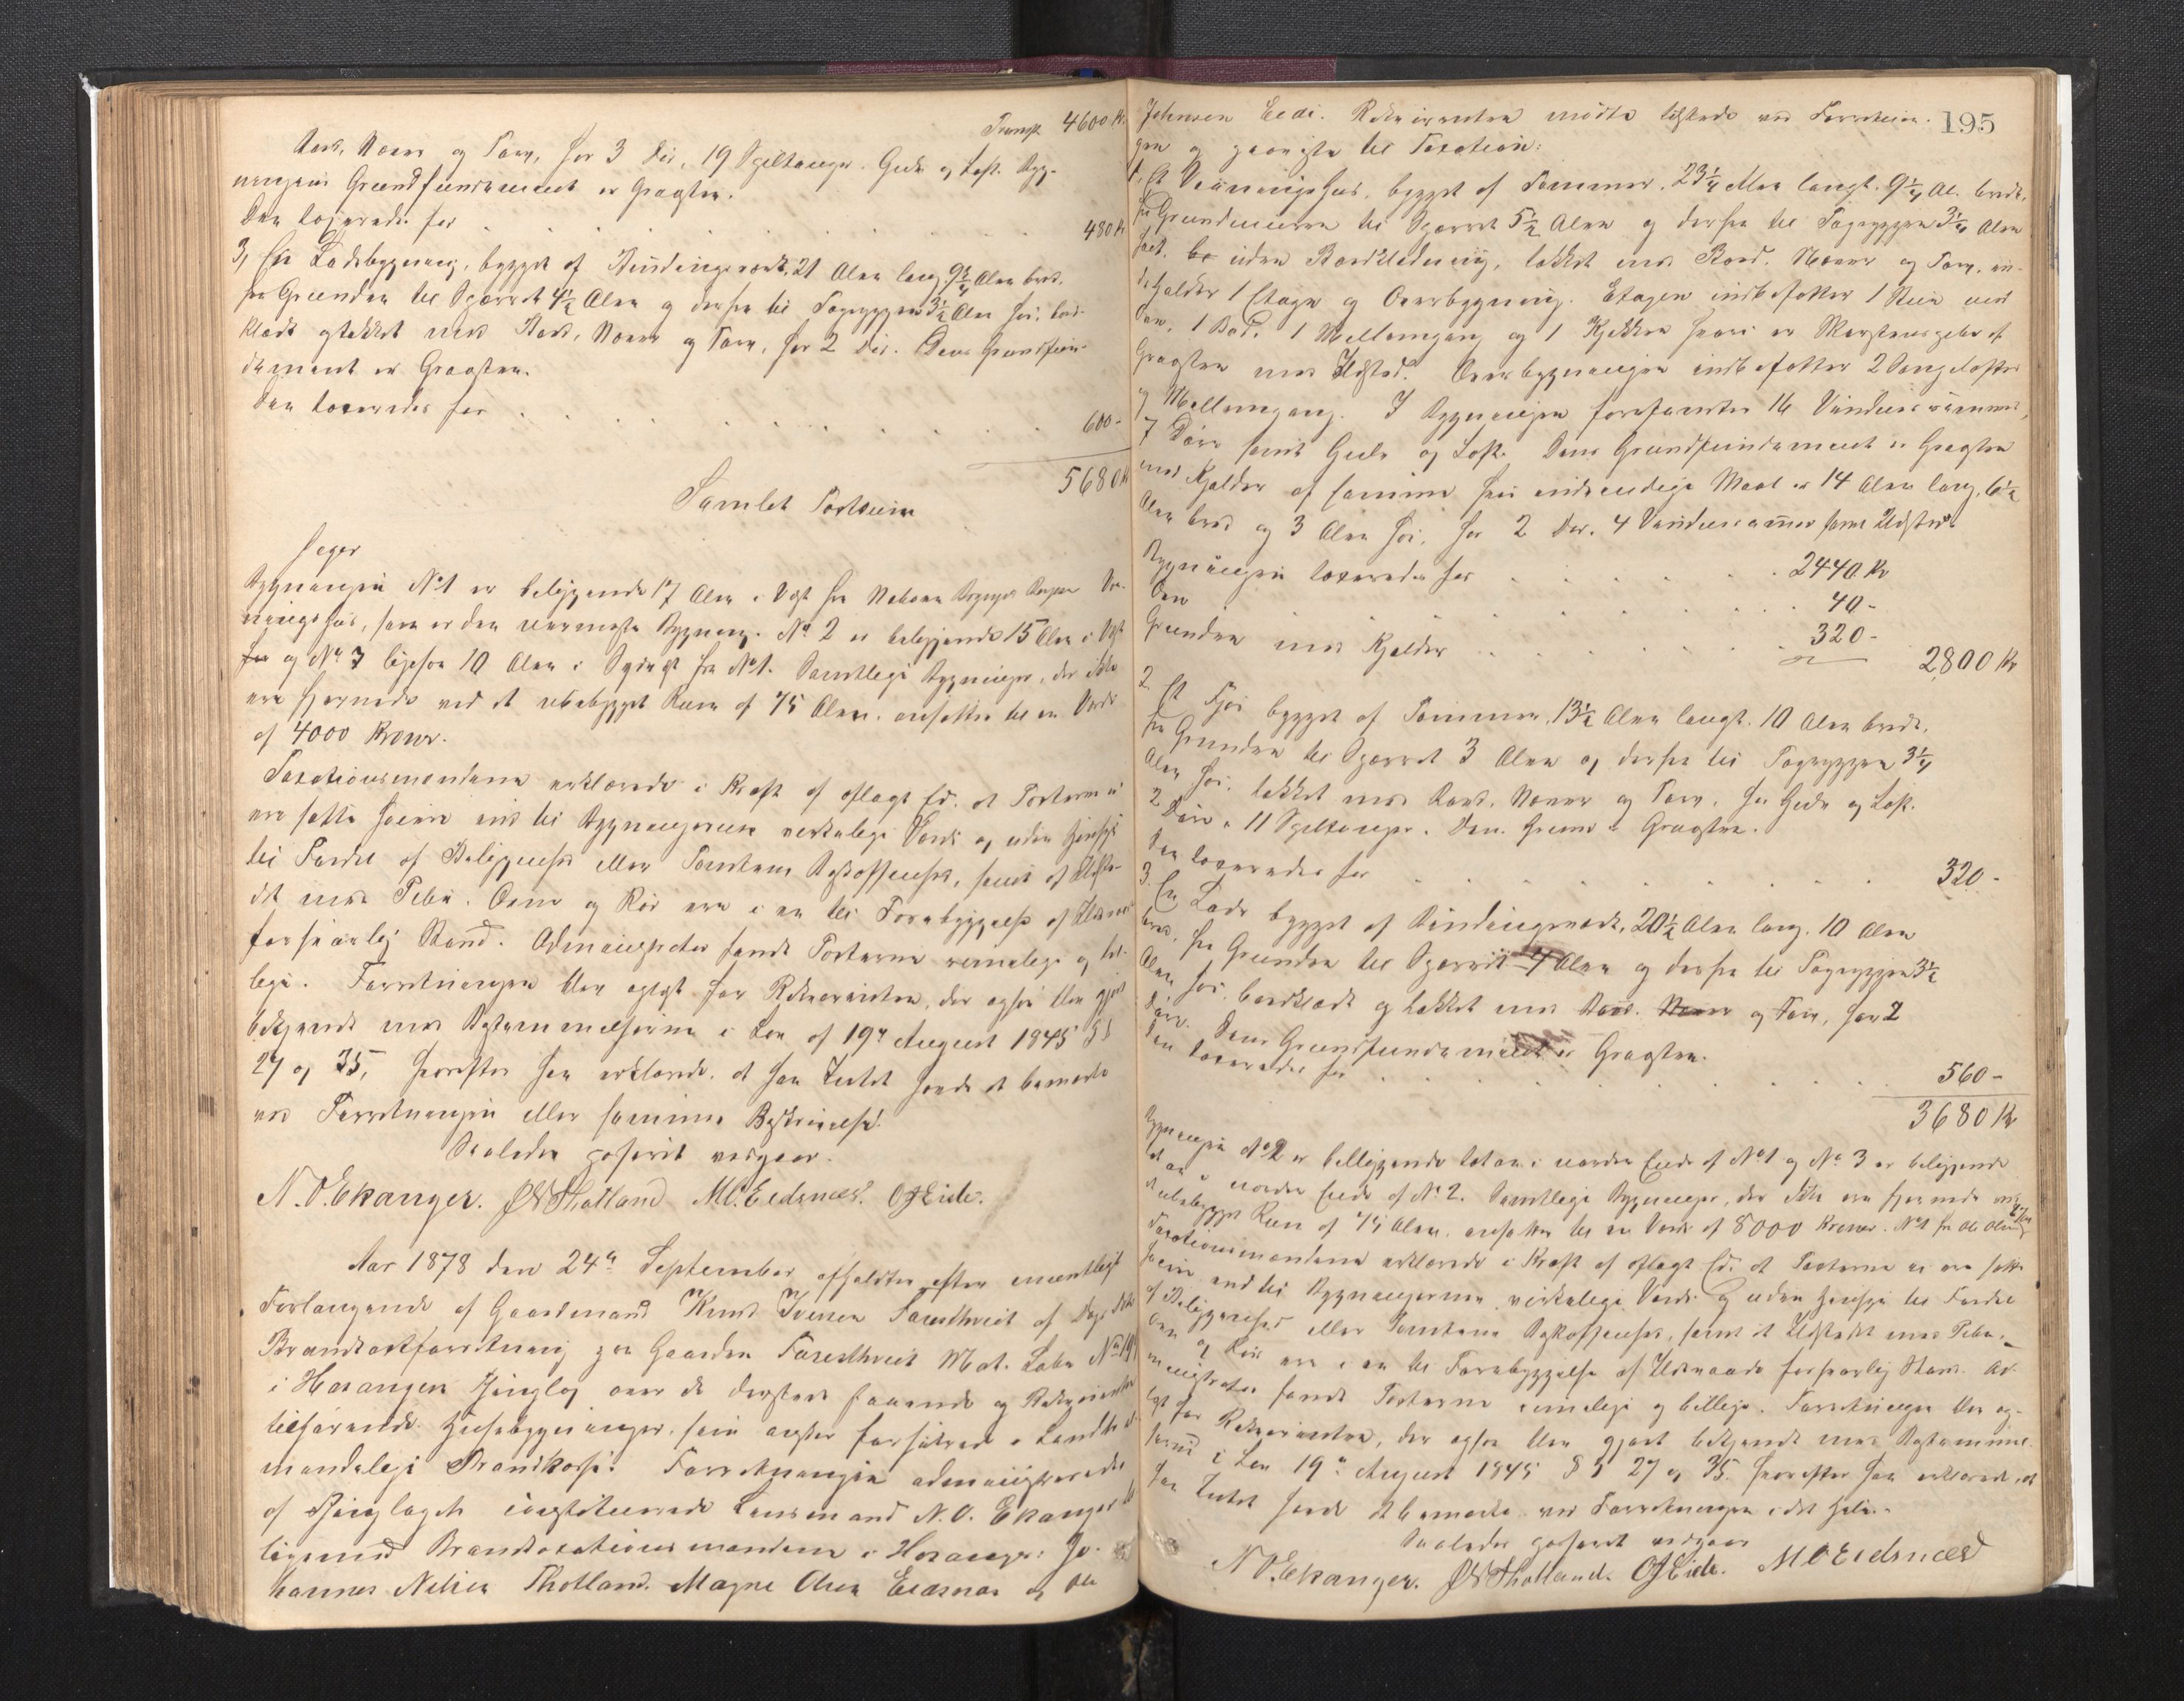 Transp. 4600 Kr.
Bord, Næver og Torv, har 3 Dør, 19 Spiltouger. Gulv og Loft. Byg-
ningens Grundfundament er Graasten.
Den taxeredes for . . . . . . . . 480 Kr
3, En Ladebygning, bygget af Bindingsværk, 21 Alen lang, 9 3/4 Alen bred,
fra Grunden til Sparret 4 1/2 Alen og derfra til Tagryggen 3 1/2 Alen høi, bord-
klædt og tækket med Bord, Næver og Torv, har 2 Dør. Dens Grundfun-
dament er Graasten.
Den taxeredes for . . . . . . . . 600 -
5680 Kr
Samlet Taxtsum
Bygningen No 1 er beliggende 17 Alen i Vest fra Naboen Vaa-
ningshus, som er den nærmeste Bygning. No 2 er beliggende 15 Alen i Vest
og No 3 ligesom 10 Alen i Sydvest fra No 1. Samtlige Bygninger, der ikke
ere fjernede ved et ubebygget Rum af 75 Alen, ansættes til en Værdi
af 4000 Kroner.
Taxationsmændene erklærede i Kraft af aflagt Ed, at Taxterne ei
ere satte høiere end til Bygningernes virkelige Værdi og uden Hensyn
til Fordel af Beliggenhed eller Tomtens Beskaffenhed, samt at Ildste-
det med Pibe, Ovne og Rør ere i en til Forebyggelse af Ildsvaade
forsvarlig Stand. Administrator fandt Taxterne rimelige og bil-
lige. Forretningen blev oplæst for Rekvirenten, der ogsaa blev gjort
bekjendt med Bestemmelserne i Lov af 19de August 1845 §§
27 og 35, hvorefter han erklærede, at han Intet havde at bemærke
ved Forretningen eller samme Beskrivelse.
Saaledes passeret vedgaar.
N. O. Ekanger. JN Thotland M. O. Eidsnæs. OJEide.
Aar 1878 den 24de September afholdtes efter mundtligt
Forlangende af Gaardmand Knud Iversen Farestveit af Dags Dato
Brandtaxtforretning paa Gaarden Farestveit Mat. Løbe No 19
i Hosanger Thinglag over de dersteds staaende og Rekvirenten
tilhørende Husebygninger, som agtes forsikrede i Landets al-
mindelige Brandkasse. Forretningen administreredes
af Thinglagets constituerede Lensmand N. O. Ekanger til-
ligemed Brandtaxationsmændene i Hosanger: Jo-
hannes Nilsen Thotland, Magne Olsen Eidsnæs og Ole
195
Johnsen Eide. Rekvirenten mødte tilstede ved Forretnin-
gen og gaaes til Taxation:
1. Et Vaaningshus, bygget af Tømmer, 23 1/4 Alen langt, 9 1/4 Al. bredt,
fra Grundmuren til Sparret 5 1/2 Alen og derfra til Tagryggen 3 1/4 Alen
høit, uden Bordklædning, tækket med Bord, Næver og Torv, in-
deholder 1 Etage og Overbygning. Etagen indbefatter 1 Stue med
Ovn, 1 Bod, 1 Mellemgang og 1 Kjøkken hvori er Skorstenspibe af
Graasten med Ildsted. Overbygningen indbefatter 2 Sengelofter
og Mellemgang. I Bygningen forefindes 16 Vinduesrammer,
7 Døre samt Gulv og Loft. Dens Grundfundament er Graasten
med Kjelder af samme hvis indvendige Maal er 14 Alen lang, 6 1/2
Alen bred og 3 Alen høi, har 2 Dør, 4 Vinduesrammer samt Ildsted.
Bygningen taxeredes for . . . . . . 2440 Kr
Ovn . . . . . . 40 -
Grunden med Kjelder . . . . . . 320 -
2800 Kr
2 Et Fjøs bygget af Tømmer, 13 1/2 Alen langt, 10 Alen bredt,
fra Grunden til Sparret 3 Alen og derfra til Tagryggen 3 1/4
Alen høi, tækket med Bord, Næver og Torv, har Gulv og Loft,
2 Døre, 11 Spiltouger. Den. Grund er Graasten.
Den taxeredes for . . . . . . 320 -
3. En Lade bygget af Bindingsværk, 20 1/2 Alen lang, 10 Alen
bred, fra Grunden til Sparret 4 Alen og derfra til Tagryggen 3 1/2
Alen høi, bordklædt og tækket med Bord, Næver og Torv, har 2
Døre. Dens Grundfundament er Graasten.
Den taxeredes for . . . . . . 560 -
3680 Kr
Bygningen No 2 er beliggende tæt an i nordre Ende af No 1 og No 3 er beliggende
tæt an i nordre Ende af No 2. Samtlige Bygninger, der ikke ere fjernede ved
et ubebygget Rum af 75 Alen, ansættes til en Værdi af 8000 Kroner. No 1 fra Ole
Taxationsmændene erklærede i Kraft af aflagt Ed, at Taxterne ei ere satte
høiere end til Bygningernes virkelige Værdi og uden Hensyn til Fordel
af Beliggenhed eller Tomtens Beskaffenhed, samt at Ildstedet med Pibe,
Ovn og Rør ere i en til Forebyggelse af Ildsvaade forsvarlig Stand. Ad-
ministrator fandt Taxterne rimelige og billige. Forretningen blev op-
læst for Rekvirenten, der ogsaa blev gjort bekjendt med Bestemmel-
serne i Lov 19de August 1845 §§ 27 og 35, hvorefter han erklærede, at
han Intet havde at bemærke ved Forretningen i det Hele.
Saaledes passeret vedgaar
N. O. Ekanger. JN Thotland. OJEide. M O Eidsnæs